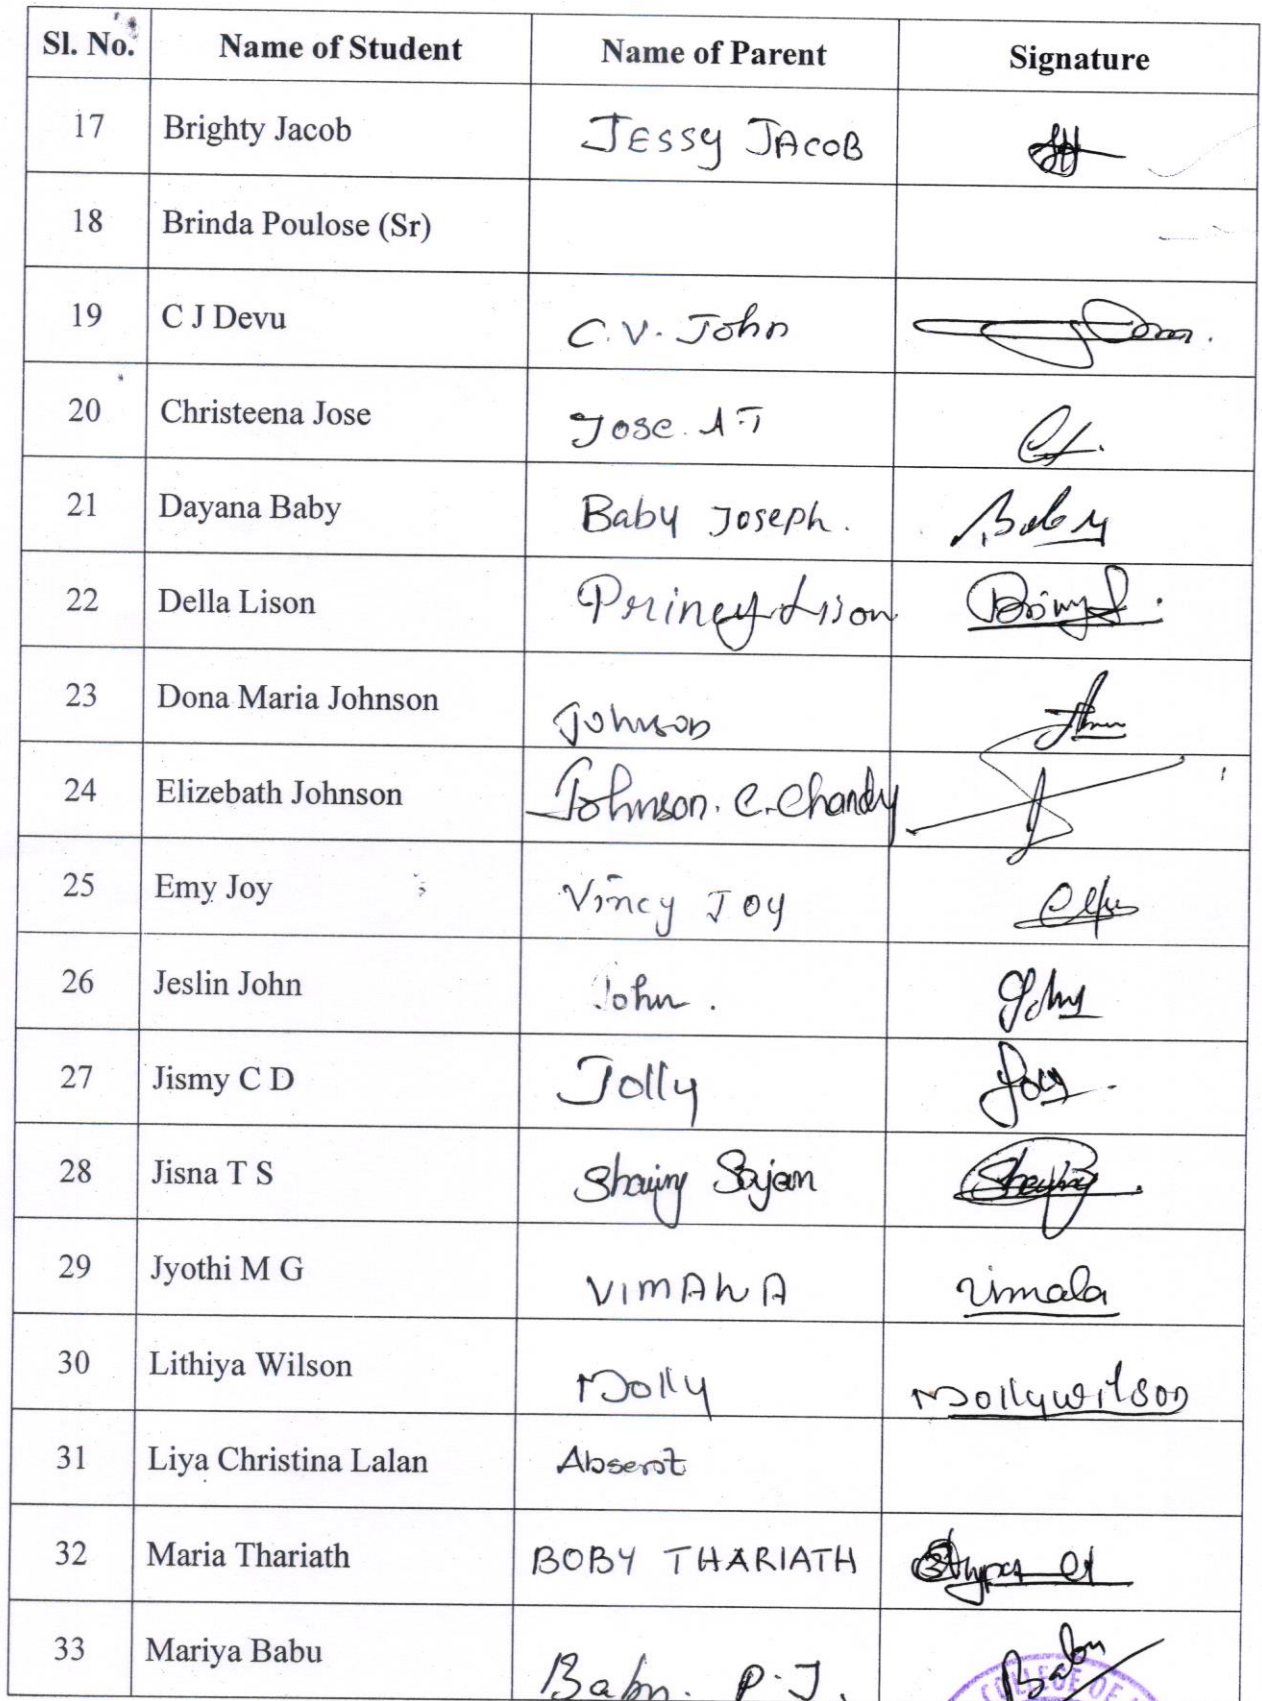 Sl. No. Name of Student Name of Parent Signature
17 Brighty Jacob JESSY JACOB
18 Brinda Poulose (Sr)
19 C J Devu C.V. John
20 Christeena Jose Jose. A T
21 Dayana Baby Baby Joseph. Baby
22 Della Lison Princy Lison
23 Dona Maria Johnson Johnson
24 Elizebath Johnson Johnson. C. Chandy
25 Emy Joy Vincy Joy
26 Jeslin John John.
27 Jismy C D Jolly
28 Jisna T S Sajan
29 Jyothi M G VIMALA Vimala
30 Lithiya Wilson Molly Molly wilson
31 Liya Christina Lalan Absent
32 Maria Thariath BOBY THARIATH
33 Mariya Babu Babu. P. J. Babu
COLLEGE OF